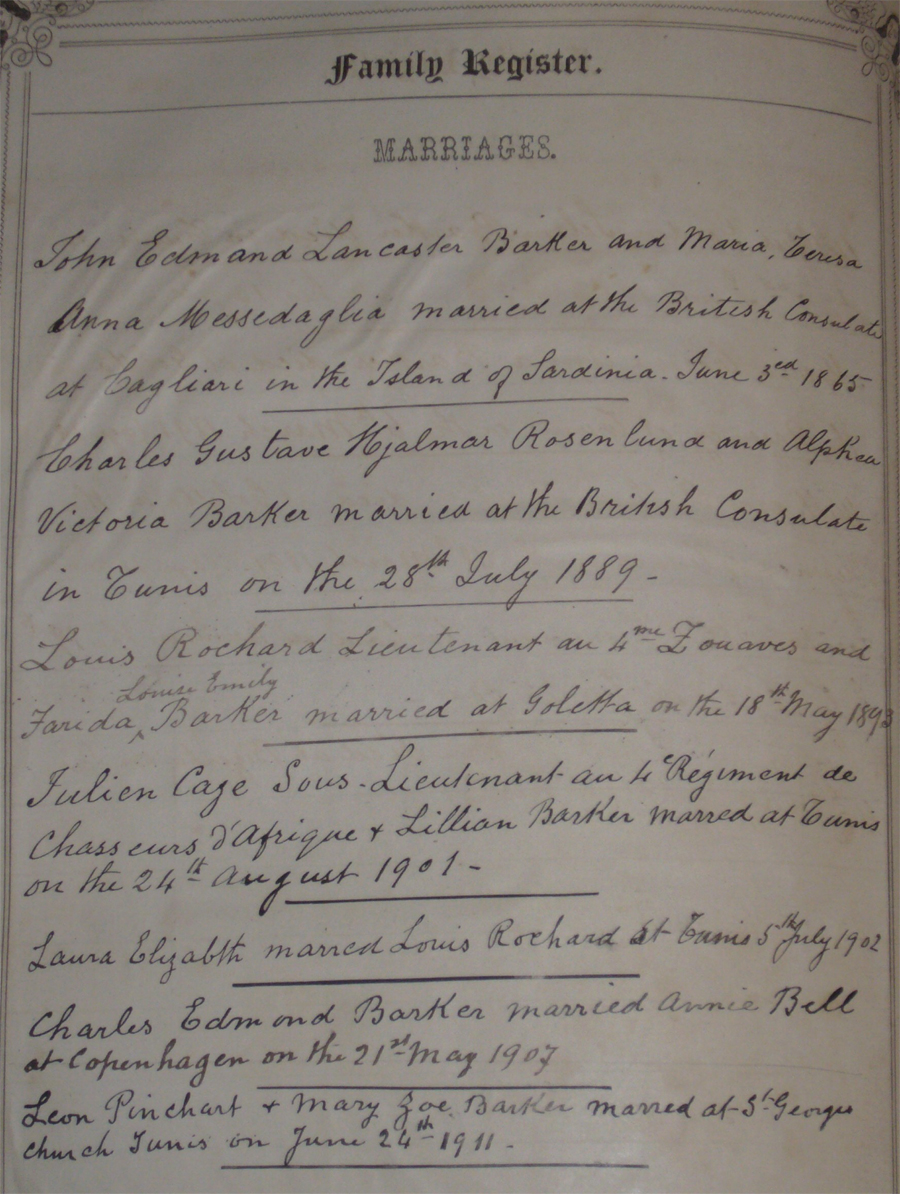 Family Register.
MARRIAGES.
John Edmand Lancaster Barker and Maria, Teresa
Anna Messedaglia married at the British Consulate
at Cagliari in the Island of Sardinia. June 3ed 1865
Charles Gustave Hjalmar Rosenlund and Alphea
Victoria Barker married at the British Consulate
in Tunis on the 28th July 1889 -
Louis Rochard Lieutenant au 4me Zouaves and
Louise Emily
Farida ^ Barker married at Goletta on the 18th May 1893
Julien Cage Sous-Lieutenant au 4e Régiment de
Chasseurs d'Afrique + Lillian Barker marred at Tunis
on the 24th August 1901 -
Laura Elizabth marred Louis Rochard at Tunis 5th July 1902
Charles Edmond Barker married Annie Bell
at Copenhagen on the 21st May 1907
Leon Pinchart + Mary Zoe Barker marred at St Georges
church Tunis on June 24th 1911 -